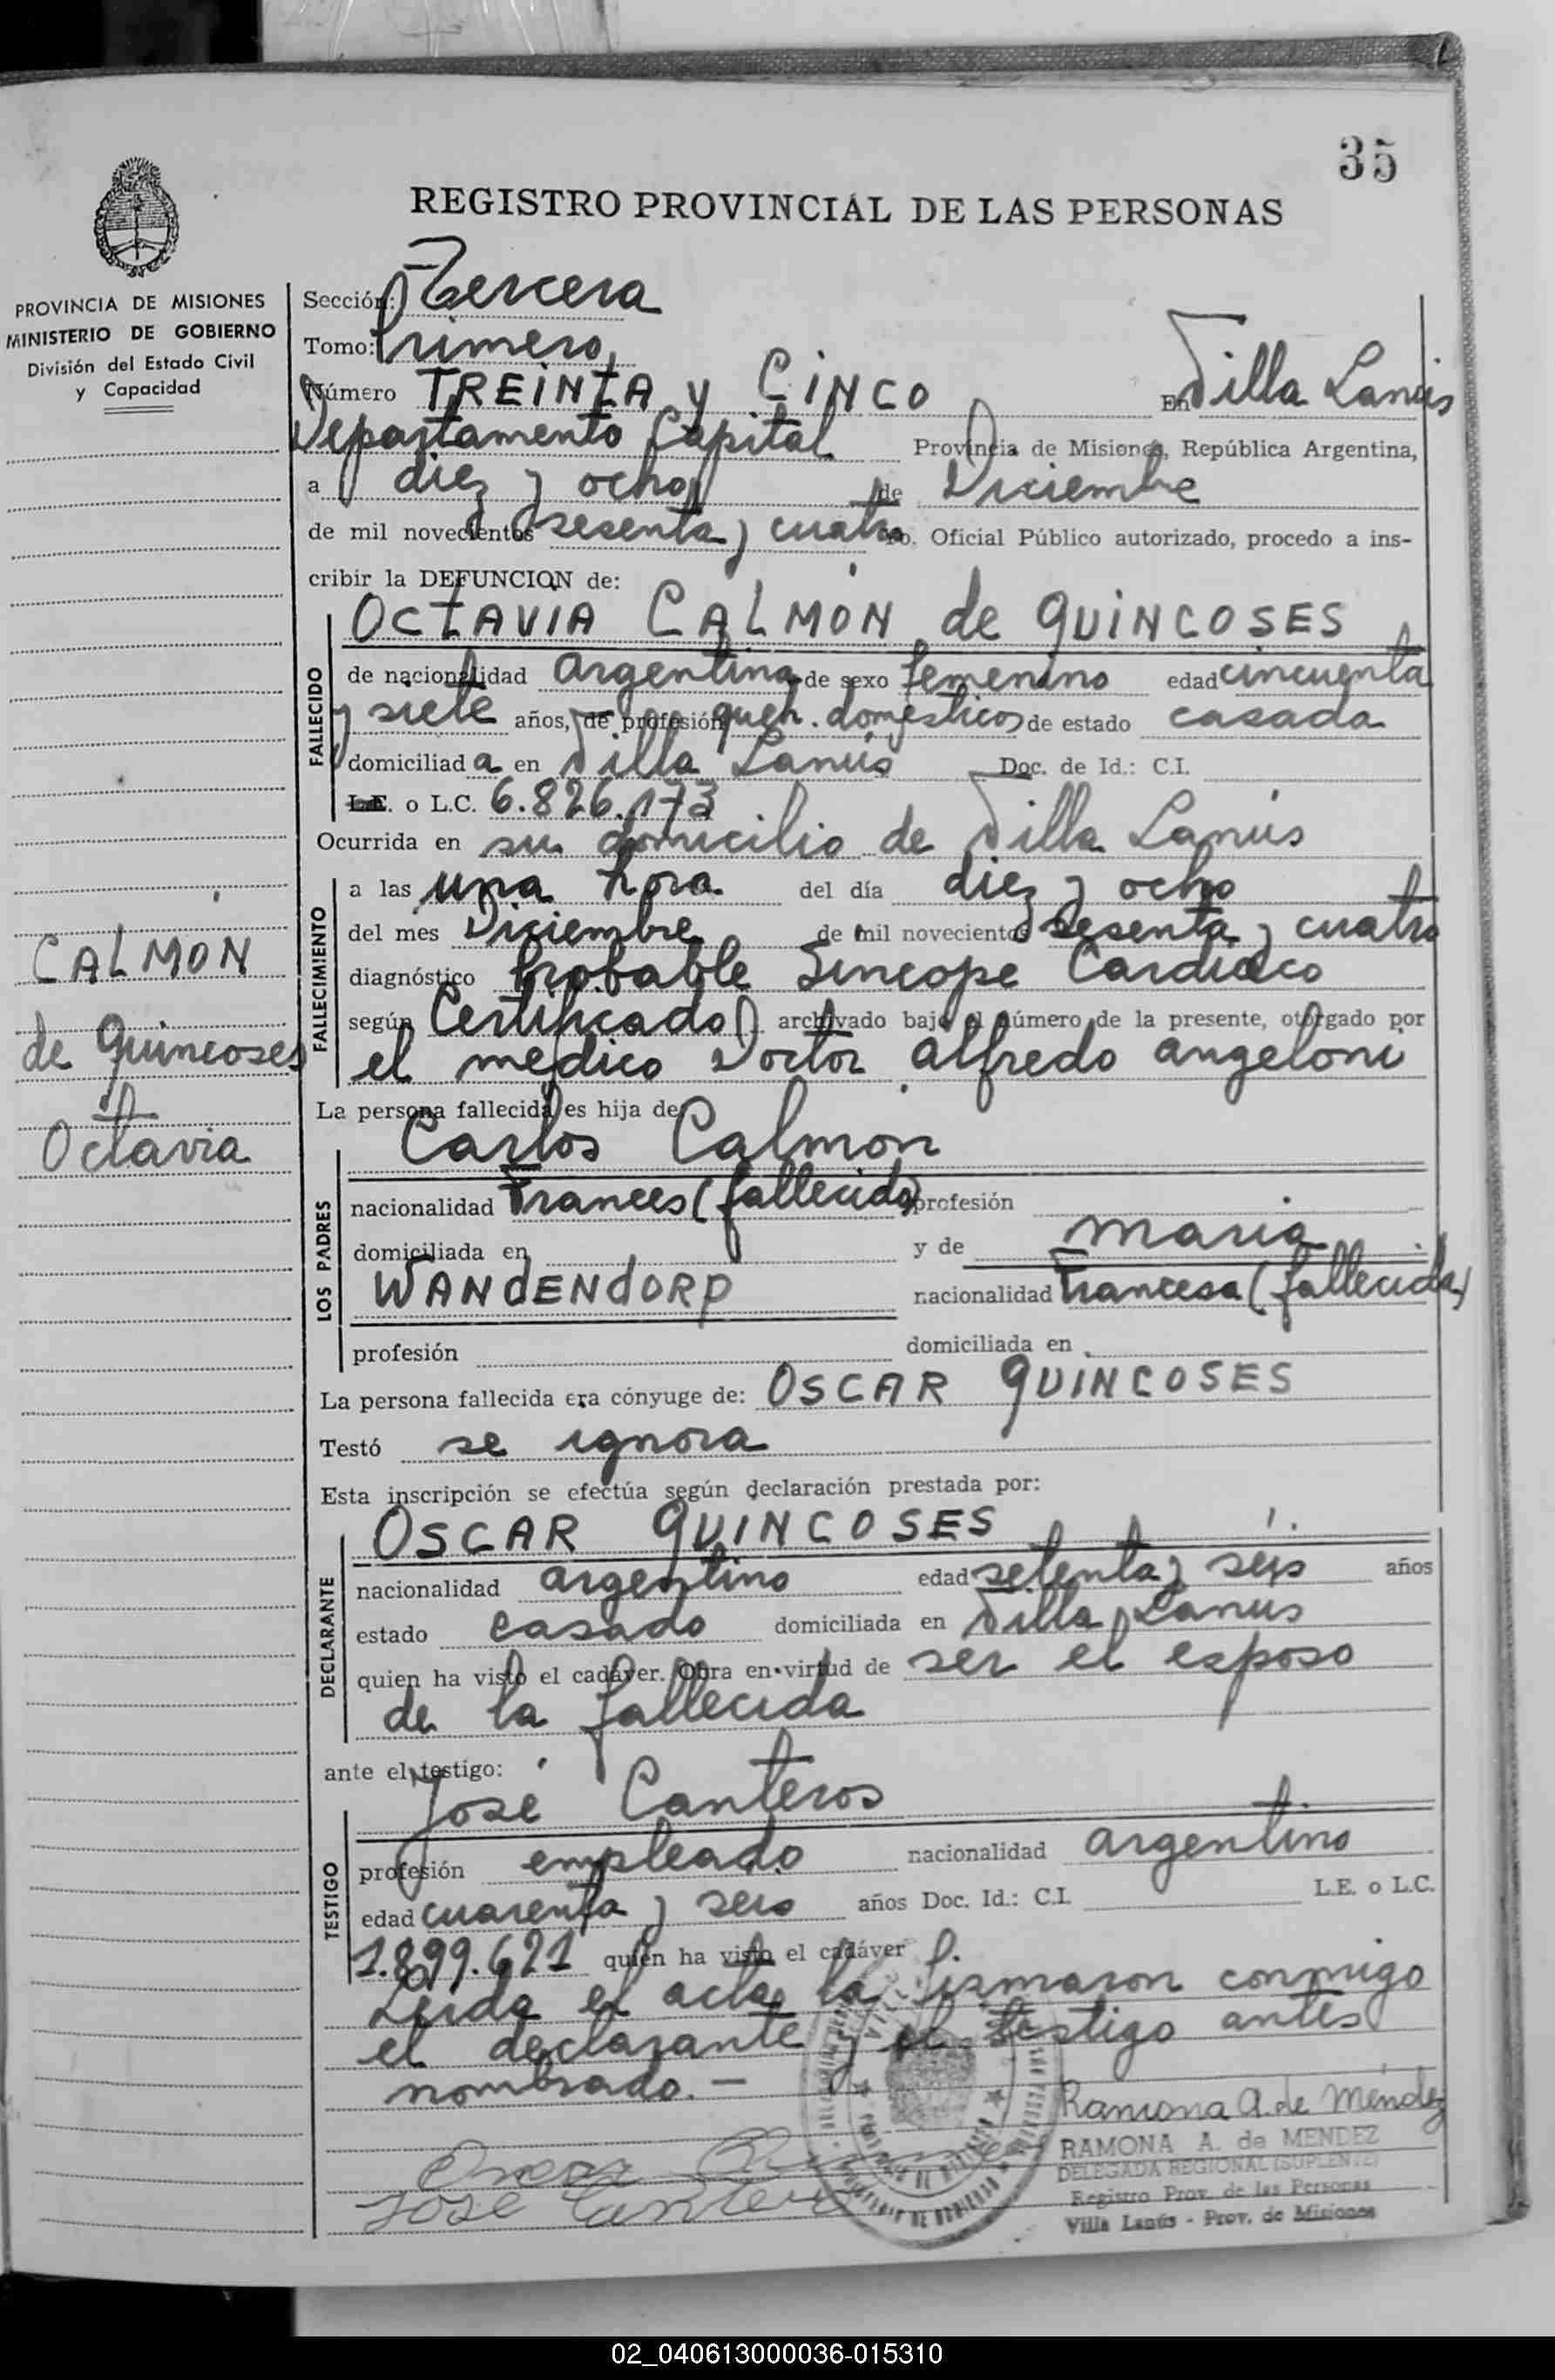 35
REGISTRO PROVINCIAL DE LAS PERSONAS
PROVINCIA DE MISIONES
MINISTERIO DE GOBIERNO
División del Estado Civil
y Capacidad
CALMON
de Quincoses
Octavia
Sección: Tercera
Tomo: Primero
Número TREINTA y CINCO En Villa Lanús
Departamento Capital Provincia de Misiones, República Argentina,
a diez y ocho de Diciembre
de mil novecientos sesenta y cuatro Yo. Oficial Público autorizado, procedo a ins-
cribir la DEFUNCION de:
FALLECIDO
OCTAVIA CALMON de QUINCOSES
de nacionalidad argentina de sexo femenino edad cincuenta
y siete años, de profesión queh. domésticos de estado casada
domiciliada en Villa Lanús Doc. de Id.: C.I.
L.E. o L.C. 6.826.173
Ocurrida en su domicilio de Villa Lanús
FALLECIMIENTO
a las una hora del día diez y ocho
del mes Diciembre de mil novecientos sesenta y cuatro
diagnóstico Probable Sincope Cardiaco
según Certificado archivado bajo el número de la presente, otorgado por
el medico Doctor Alfredo Angeloni
La persona fallecida es hija de
LOS PADRES
Carlos Calmon
nacionalidad Frances (fallecido) profesión
domiciliada en y de Maria
WANdENdORP nacionalidad Francesa (fallecida)
profesión domiciliada en
La persona fallecida era cónyuge de: OSCAR QUINCOSES
Testó se ignora
Esta inscripción se efectúa según declaración prestada por:
DECLARANTE
OSCAR QUINCOSES
nacionalidad argentino edad setenta y seis años
estado casado domiciliada en Villa Lanus
quien ha visto el cadáver. Obra en virtud de ser el esposo
de la fallecida
ante el testigo:
TESTIGO
José Canteros
profesión empleado nacionalidad argentino
edad cuarenta y seis años Doc. Id.: C.I. L.E. o L.C.
1.899.621 quien ha visto el cadáver
Leida el acta la firmaron conmigo
el declarante y el testigo antes
nombrado. —
Ramona A. de Méndez
RAMONA A. de MENDEZ
DELEGADA REGIONAL (SUPLENTE)
Registro Prov. de las Personas
Villa Lanús - Prov. de Misiones
Oscar Quincoses
José Canteros
02_040613000036-015310